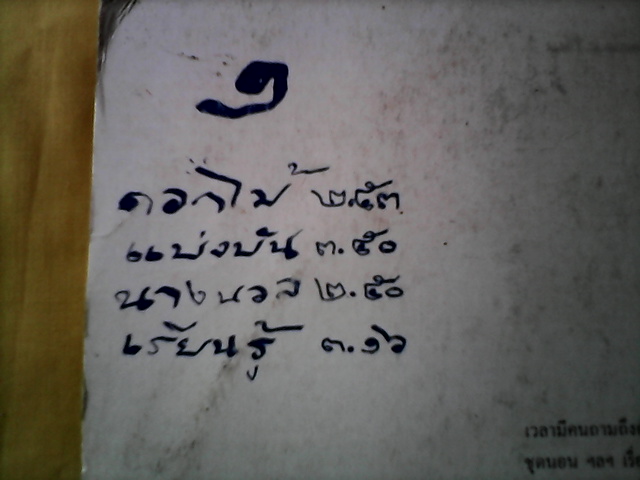 ๑
ดอกไม้ ๒.๕๓
แบ่งปัน ๓.๕๐
นางนวล ๒.๕๐
เรียนรู้ ๓.๑๖
เวลามีคนถามถึง
ชุดนอน ฯลฯ เรื่